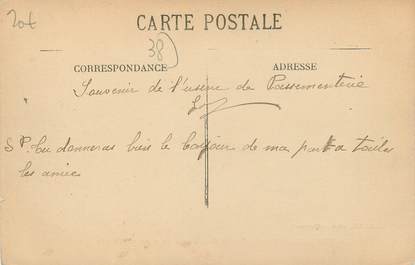 CARTE POSTALE
38
CORRESPONDANCE
ADRESSE
Souvenir de l'usine de Passementerie
SP. tu donneras bien le bonjour de ma part a toutes
les amies